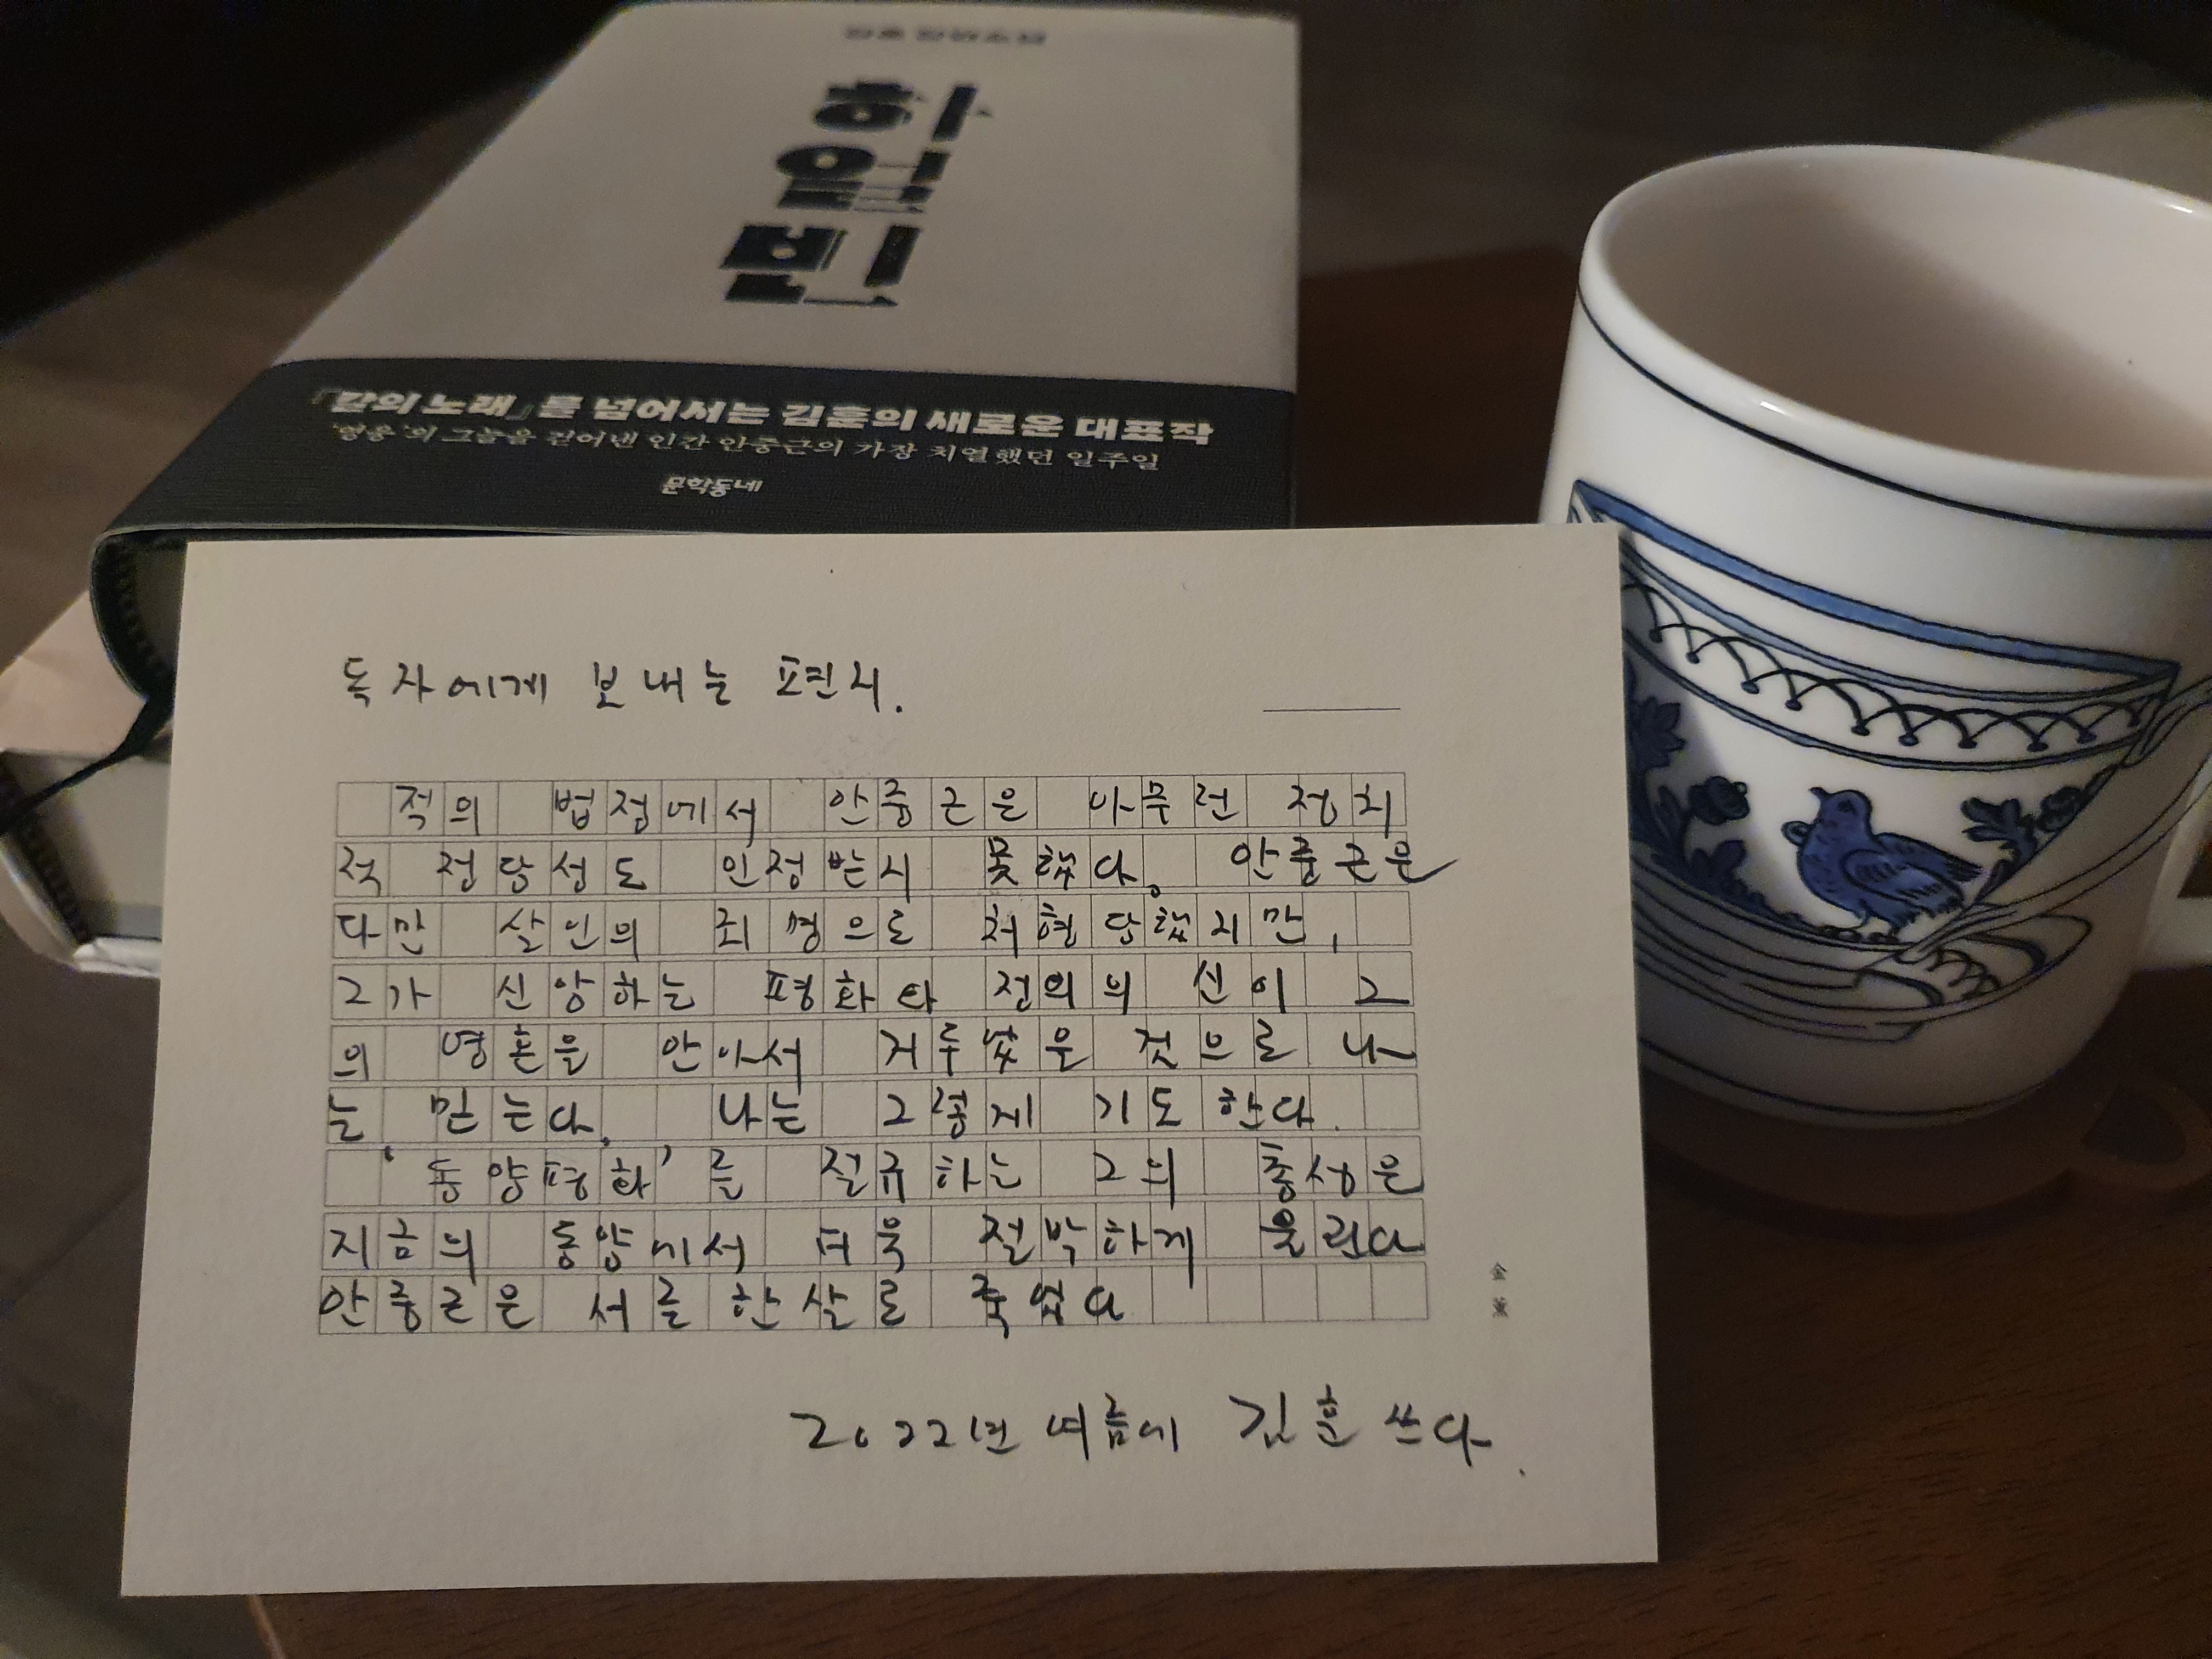 김훈 장편소설
하
얼
빈
『칼의 노래』를 넘어서는 김훈의 새로운 대표작
'영웅'의 그늘을 걷어낸 인간 안중근의 가장 치열했던 일주일
문학동네
독자에게 보내는 편지.
적의 법정에서 안중근은 아무런 정치
적 정당성도 인정받지 못했다。 안중근은
다만 살인의 죄명으로 처형당했지만,
그가 신앙하는 평화와 정의의 신이 그
의 영혼을 안아서 거두었을 것으로 나
는 믿는다. 나는 그렇게 기도한다.
'동양평화'를 절규하는 그의 총성은
지금의 동양에서 더욱 절박하게 울린다
안중근은 서른한살로 죽었다
金
薰
2022년 여름에 김훈 쓰다.